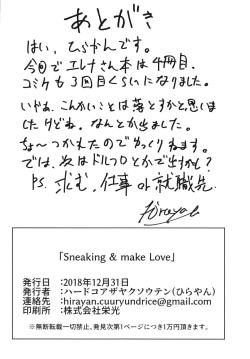 あとがき
はい、ひらやんです。
今回でエレナさん本は4冊目、
コミケも3回目くらいになりました。
いやぁ、こんかいことは落とすかと思いま
したけどね。なんとか出ました。
ちょ〜つかれたのでゆっくりねます。
では、次はドルフロとかで出すかも?
P.S. 求む、仕事 or 就職先
Hirayan
「Sneaking & make Love」
発行日 :2018年12月31日
発行者 :ハードコアザヤクソウテン(ひらやん)
連絡先 :hirayan.cuuryundrice@gmail.com
印刷所 :株式会社栄光
※無断転載一切禁止、発見次第1ページにつき1万円頂きます。